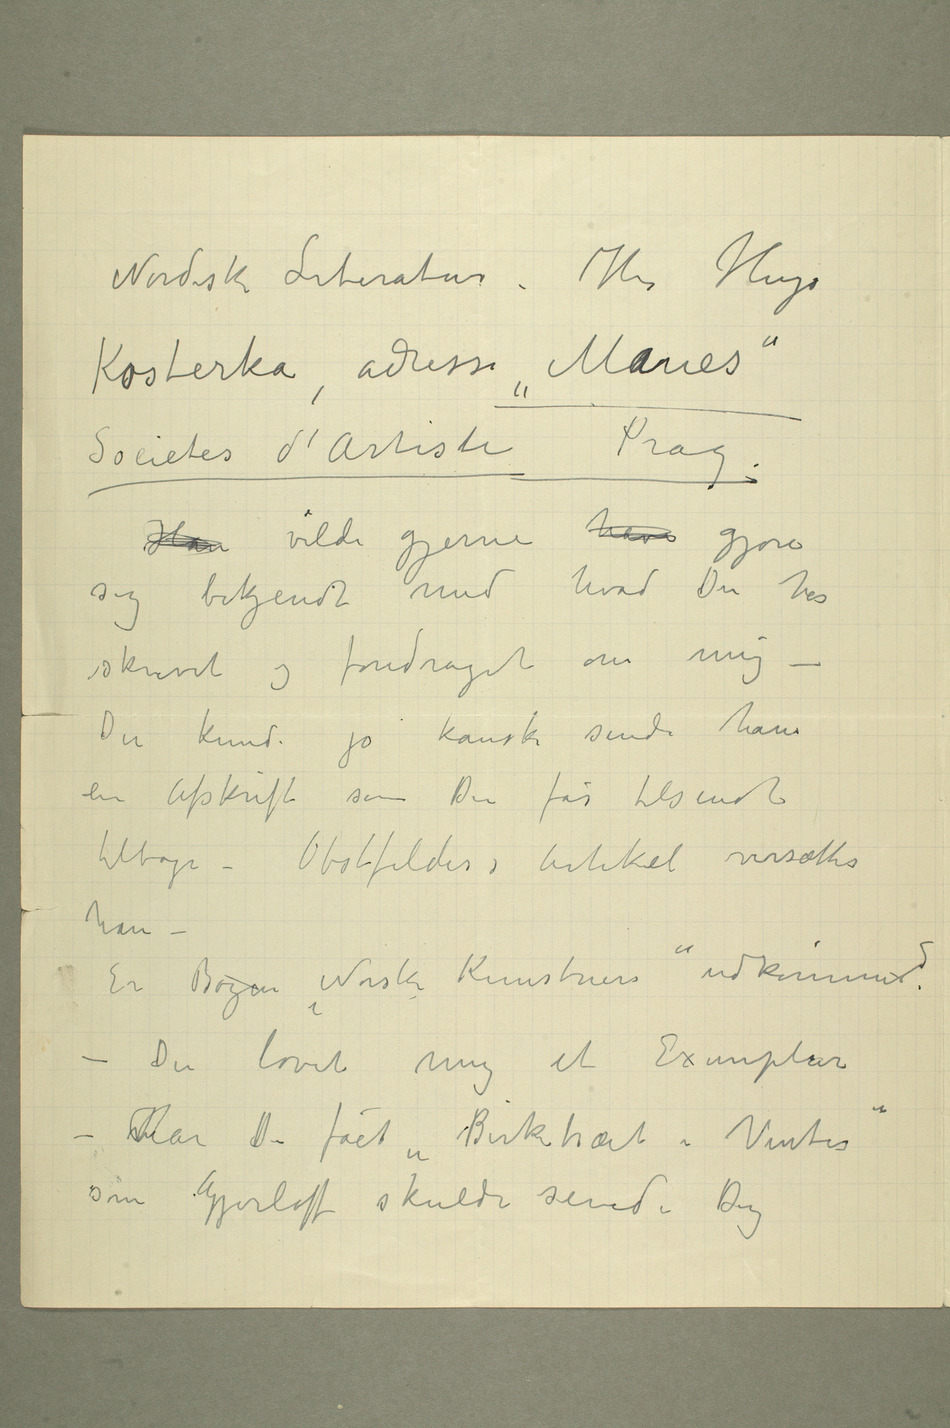 Nordisk Literatur. Hr Hugo
Kosterka, adresse „Manes“
Societes d'Artiste Prag.
Han vilde gjerne have gjøre
sig bekjendt med hvad Du har
skrevet og foredraget om mig –
Du kunde jo kanske sende ham
en Afskrift som Du får tilsendt
tilbage – Obstfelders Artikel oversættes
han –
Er Bogen „Norske Kunstnere“ udkommed?
– Du lovet mig et Exemplar
– Har Du fået „Birketræet i Vinter“
som Gjerløff skulde sende Dig